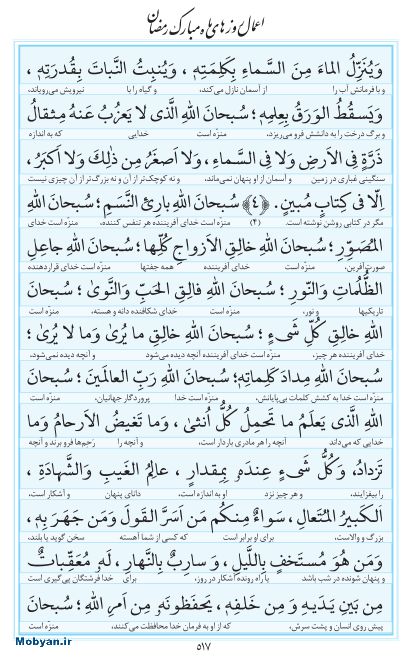 اعمال روزهای ماه مبارک رمضان
وَيُنَزِّلُ الماءَ مِنَ السَّماءِ بِكَلِمَتِهِ ، وَيُنبِتُ النَّباتَ بِقُدرَتِهِ ،
و با فرمانش آب را از آسمان نازل می‌کند، و گیاه را با نیرویش می‌رویاند،
وَيَسقُطُ الوَرَقُ بِعِلمِهِ ؛ سُبحانَ اللهِ الَّذی لا يَعزُبُ عَنهُ مِثقالُ
و برگ درخت را به دانشش فرو می‌ریزد، منزّه است خدایی که به اندازه
ذَرَّةٍ فِی الاَرضِ وَلا فِی السَّماءِ ، وَلا اَصغَرُ مِن ذلِكَ وَلا اَكبَرُ ،
سنگینی غباری در زمین و آسمان از او پنهان نمی‌ماند، و نه کوچک‌تر از آن و نه بزرگ‌تر از آن چیزی نیست
اِلّا فی كِتابٍ مُبينٍ . ﴿٤﴾ سُبحانَ اللهِ بارِئِ النَّسَمِ ؛ سُبحانَ اللهِ
مگر در کتابی روشن نوشته است. (۴) منزّه است خدای آفریننده هر تنفس کننده، منزّه است خدای
المُصَوِّرِ ؛ سُبحانَ اللهِ خالِقِ الاَزواجِ كُلِّها ؛ سُبحانَ اللهِ جاعِلِ
صورت‌آفرین، منزّه است خدای آفریننده همه جفتها منزّه است خدای قراردهنده
الظُّلُماتِ وَالنّورِ ؛ سُبحانَ اللهِ فالِقِ الحَبِّ وَالنَّوىٰ ؛ سُبحانَ
تاریکیها و نور، منزّه است خدای شکافنده دانه و هسته، منزّه است
اللهِ خالِقِ كُلِّ شَیءٍ ؛ سُبحانَ اللهِ خالِقِ ما يُرىٰ وَما لا يُرىٰ ؛
خدای آفریننده هر چیز، منزّه است خدای آفریننده آنچه دیده می‌شود و آنچه دیده نمی‌شود،
سُبحانَ اللهِ مِدادَ كَلِماتِهِ؛ سُبحانَ اللهِ رَبِّ العالَمينَ ؛ سُبحانَ
منزّه است خدا به کشش کلمات بی‌پایانش، منزّه است خدا پروردگار جهانیان، منزّه است
اللهِ الَّذی يَعلَمُ ما تَحمِلُ كُلُّ اُنثی ، وَما تَغيضُ الاَرحامُ وَما
خدایی که می‌داند آنچه را هر مادری باردار است، و آنچه را رحم‌ها فرو برند و آنچه
تَزدادُ، وَكُلُّ شَیءٍ عِندَهُ بِمِقدارٍ ، عالِمُ الغَيبِ وَالشَّهادَةِ ،
را بیفزایند، و هر چیز نزد او به اندازه است، دانای پنهان و آشکار است،
اَلكَبيرُ المُتَعالِ ، سَواءٌ مِنكُم مَن اَسَرَّ القَولَ وَمَن جَهَرَ بِهِ ،
بزرگ و والاست، برای او برابر است که کسی از شما آهسته سخن گوید یا بلند،
وَمَن هُوَ مُستَخفٍ بِاللَّيلِ ، وَسارِبٌ بِالنَّهارِ ، لَهُ مُعَقِّباتٌ
و پنهان شونده در شب باشد یا راه رونده آشکار در روز، برای خدا فرشتگان پی‌گیری است
مِن بَينِ يَدَيهِ وَمِن خَلفِهِ ، يَحفَظونَهُ مِن اَمرِ اللهِ ؛ سُبحانَ
پیش روی انسان و پشت سرش، که از او به فرمان خدا محافظت می‌کنند، منزّه است
۵۱۷
Mobyan.ir